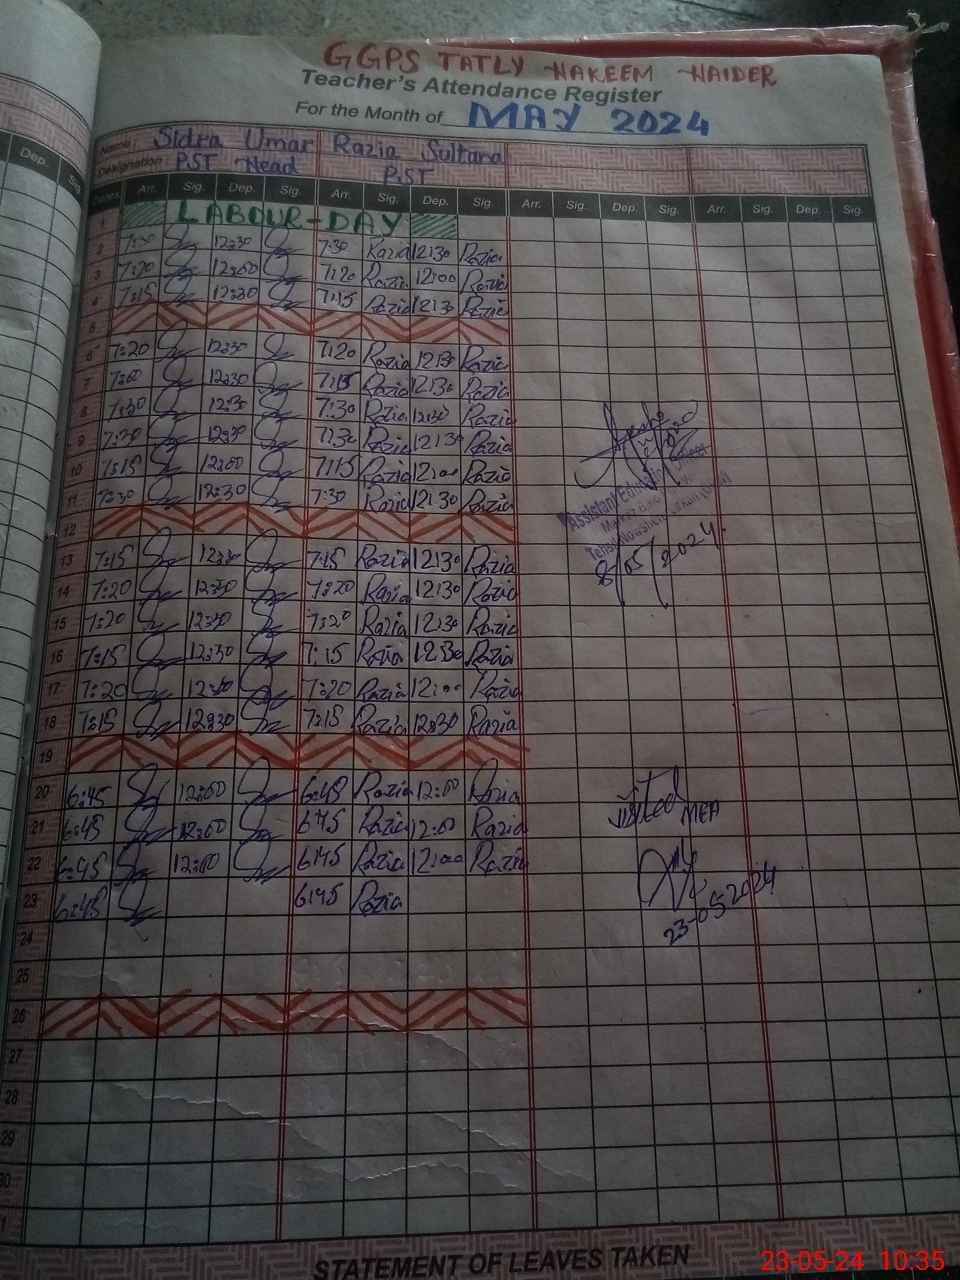 GGPS TATLY HAKEEM HAIDER
Teacher's Attendance Register
For the Month of MAY 2024
Name Sidra Umar Razia Sultana
Designation PST Head PST
Dep. Sig. Arr. Sig. Dep. Sig. Arr. Sig. Dep. Sig. Arr. Sig. Dep. Sig. Arr. Sig. Dep. Sig.
1 LABOUR-DAY
2 7:30 12:30 7:30 Razia 12:30 Razia
3 7:20 12:00 7:20 Razia 12:00 Razia
4 7:15 12:30 7:15 Razia 12:30 Razia
5
6 7:20 12:30 7:20 Razia 12:30 Razia
7 12:30 7:15 Razia 12:30 Razia
8 7:30 12:30 7:30 Razia 12:30 Razia
9 7:30 12:30 7:30 Razia 12:30 Razia
10 7:15 12:00 7:15 Razia 12:00 Razia
11 7:30 12:30 7:30 Razia 12:30 Razia
Assistant Education Officer
12
8/05/2024.
13 7:15 12:30 7:15 Razia 12:30 Razia
14 7:20 12:30 7:20 Razia 12:30 Razia
15 7:20 12:30 7:20 Razia 12:30 Razia
16 7:15 12:30 7:15 Razia 12:30 Razia
17 7:20 7:20 Razia 12:00 Razia
18 7:15 12:30 7:15 Razia 12:30 Razia
19
20 6:45 12:00 6:45 Razia 12:00 Razia
visited MEA
21 6:45 12:00 6:45 Razia 12:00 Razia
22 6:45 12:00 6:45 Razia 12:00 Razia
23 6:45 6:45 Razia
23-05-2024
24
25
26
27
28
29
30
STATEMENT OF LEAVES TAKEN
23-05-24 10:35